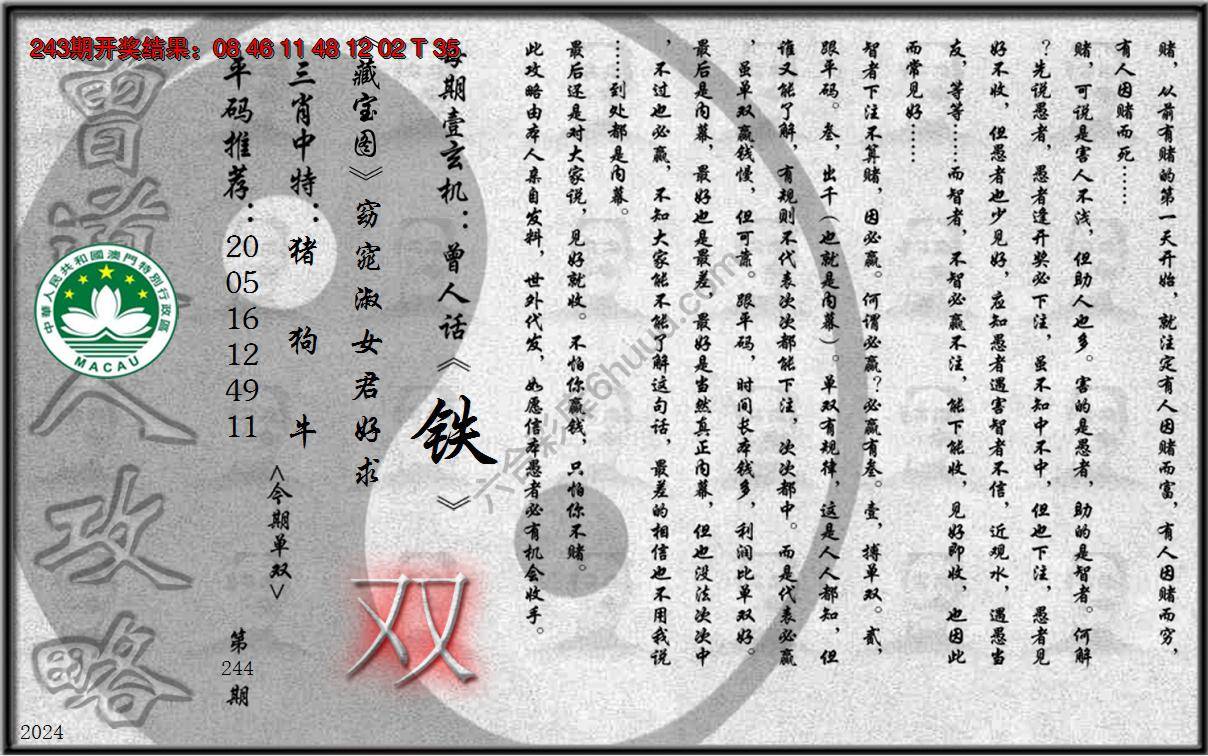 243期开奖结果：08 46 11 48 12 02 T 35
赌，从前有赌的第一天开始，就注定有人因赌而富，有人因赌而穷，
有人因赌而死……
赌，可说是害人不浅，但助人也多。害的是愚者，助的是智者。何解
？先说愚者，愚者逢开奖必下注，虽不知中不中，但也下注，愚者见
好不收，但愚者也少见好，应知愚者遇害智者不信，近观水，遇愚当
友，等等……而智者，不智必赢不注，能下能收，见好即收，也因此
而常见好……
智者下注不算赌，因必赢。何谓必赢？必赢有叁。壹，搏单双。贰，
跟平码。叁，出千（也就是内幕）。单双有规律，这是人人都知，但
谁又能了解，有规则不代表次次都能下注，次次都中。而是代表必赢
，虽单双赢钱慢，但可靠。跟平码，时间长本钱多，利润比单双好。
最后是内幕，最好也是最差，最好是当然真正内幕，但也没法次次中
，不过也必赢，不知大家能不能了解这句话，最差的相信也不用我说
……到处都是内幕。
最后还是对大家说，见好就收。不怕你赢钱，只怕你不赌。
此攻略由本人亲自发料，世外代发，如愿信本愚者必有机会收手。
每期壹玄机：曾人话《铁》
《藏宝图》窈窕淑女君好求
双
三肖中特：猪 狗 牛
<今期单双>
平码推荐：20 05 16 12 49 11
第244期
曾道人攻略
中華人民共和國澳門特別行政區
MACAU
六合彩库6huuu.com
2024